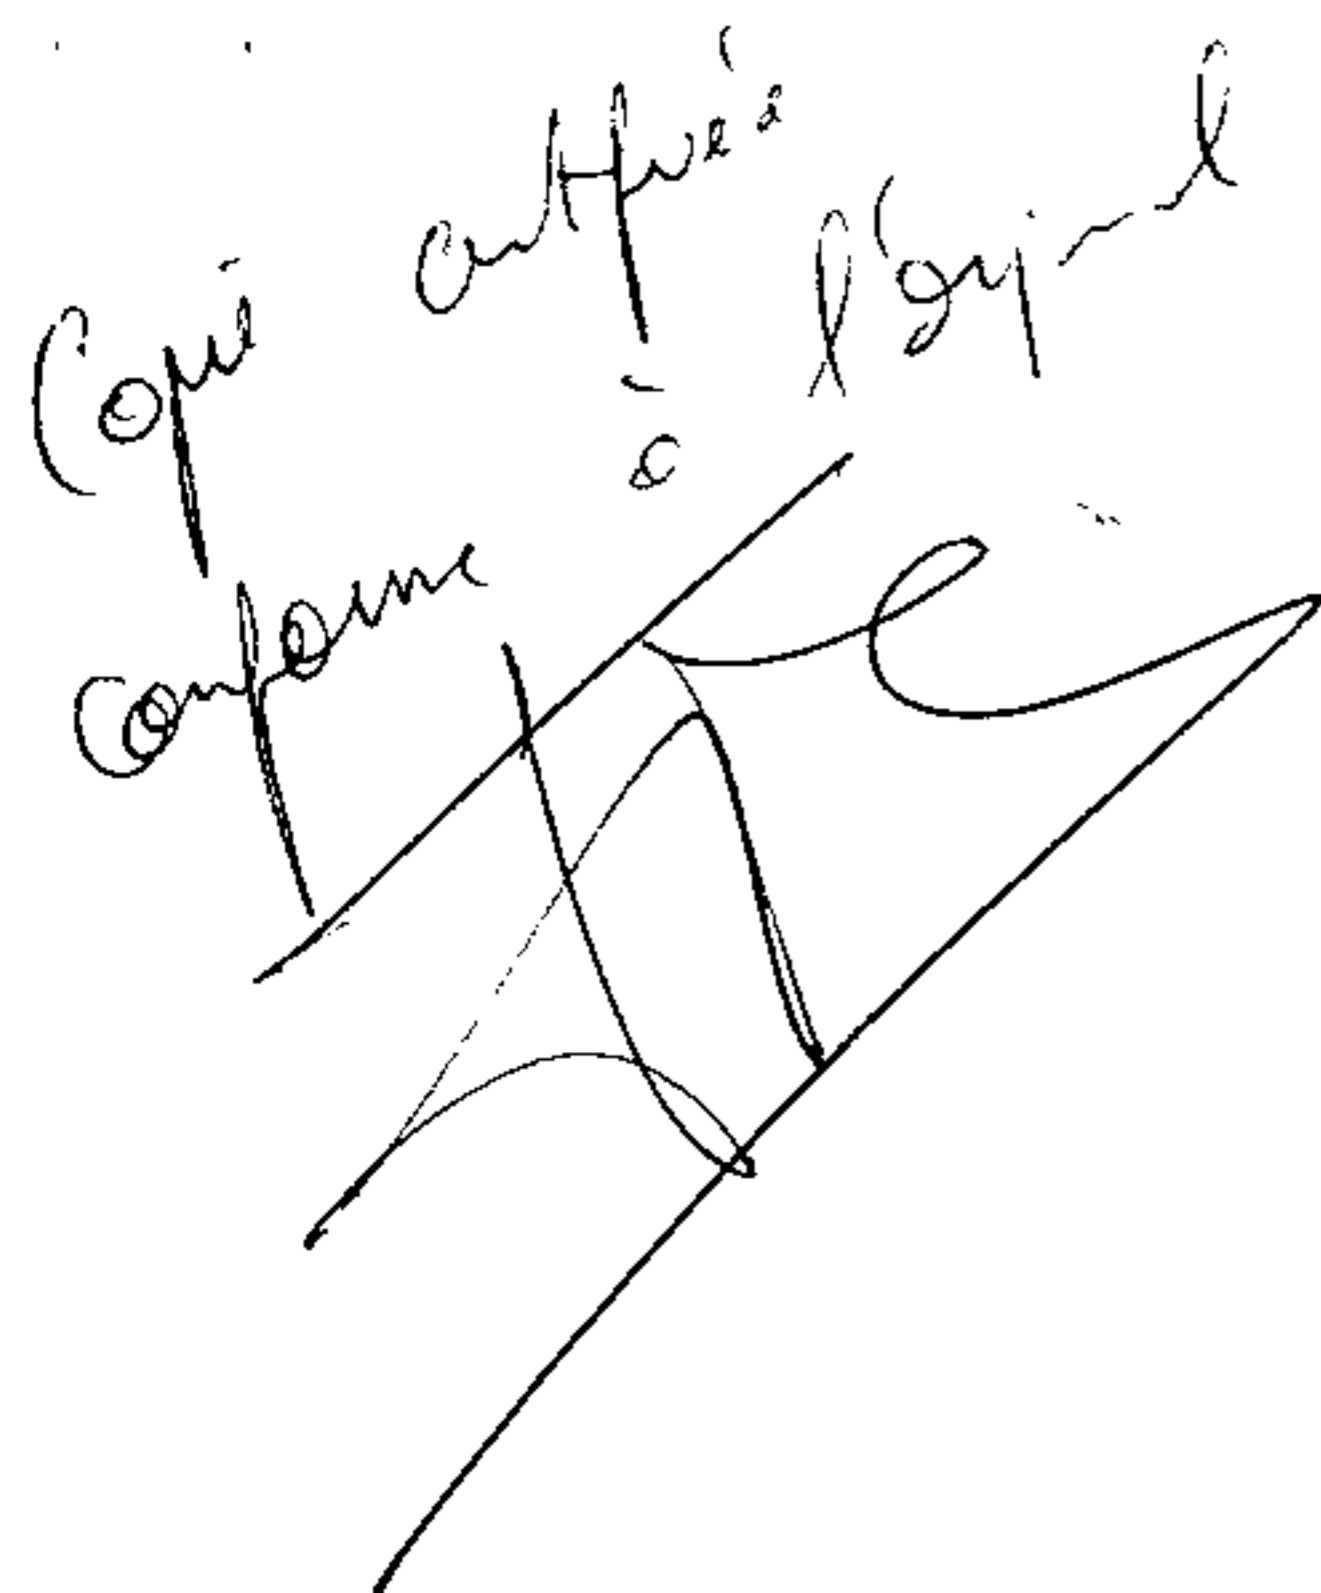 Copie certifiée
conforme à l'original